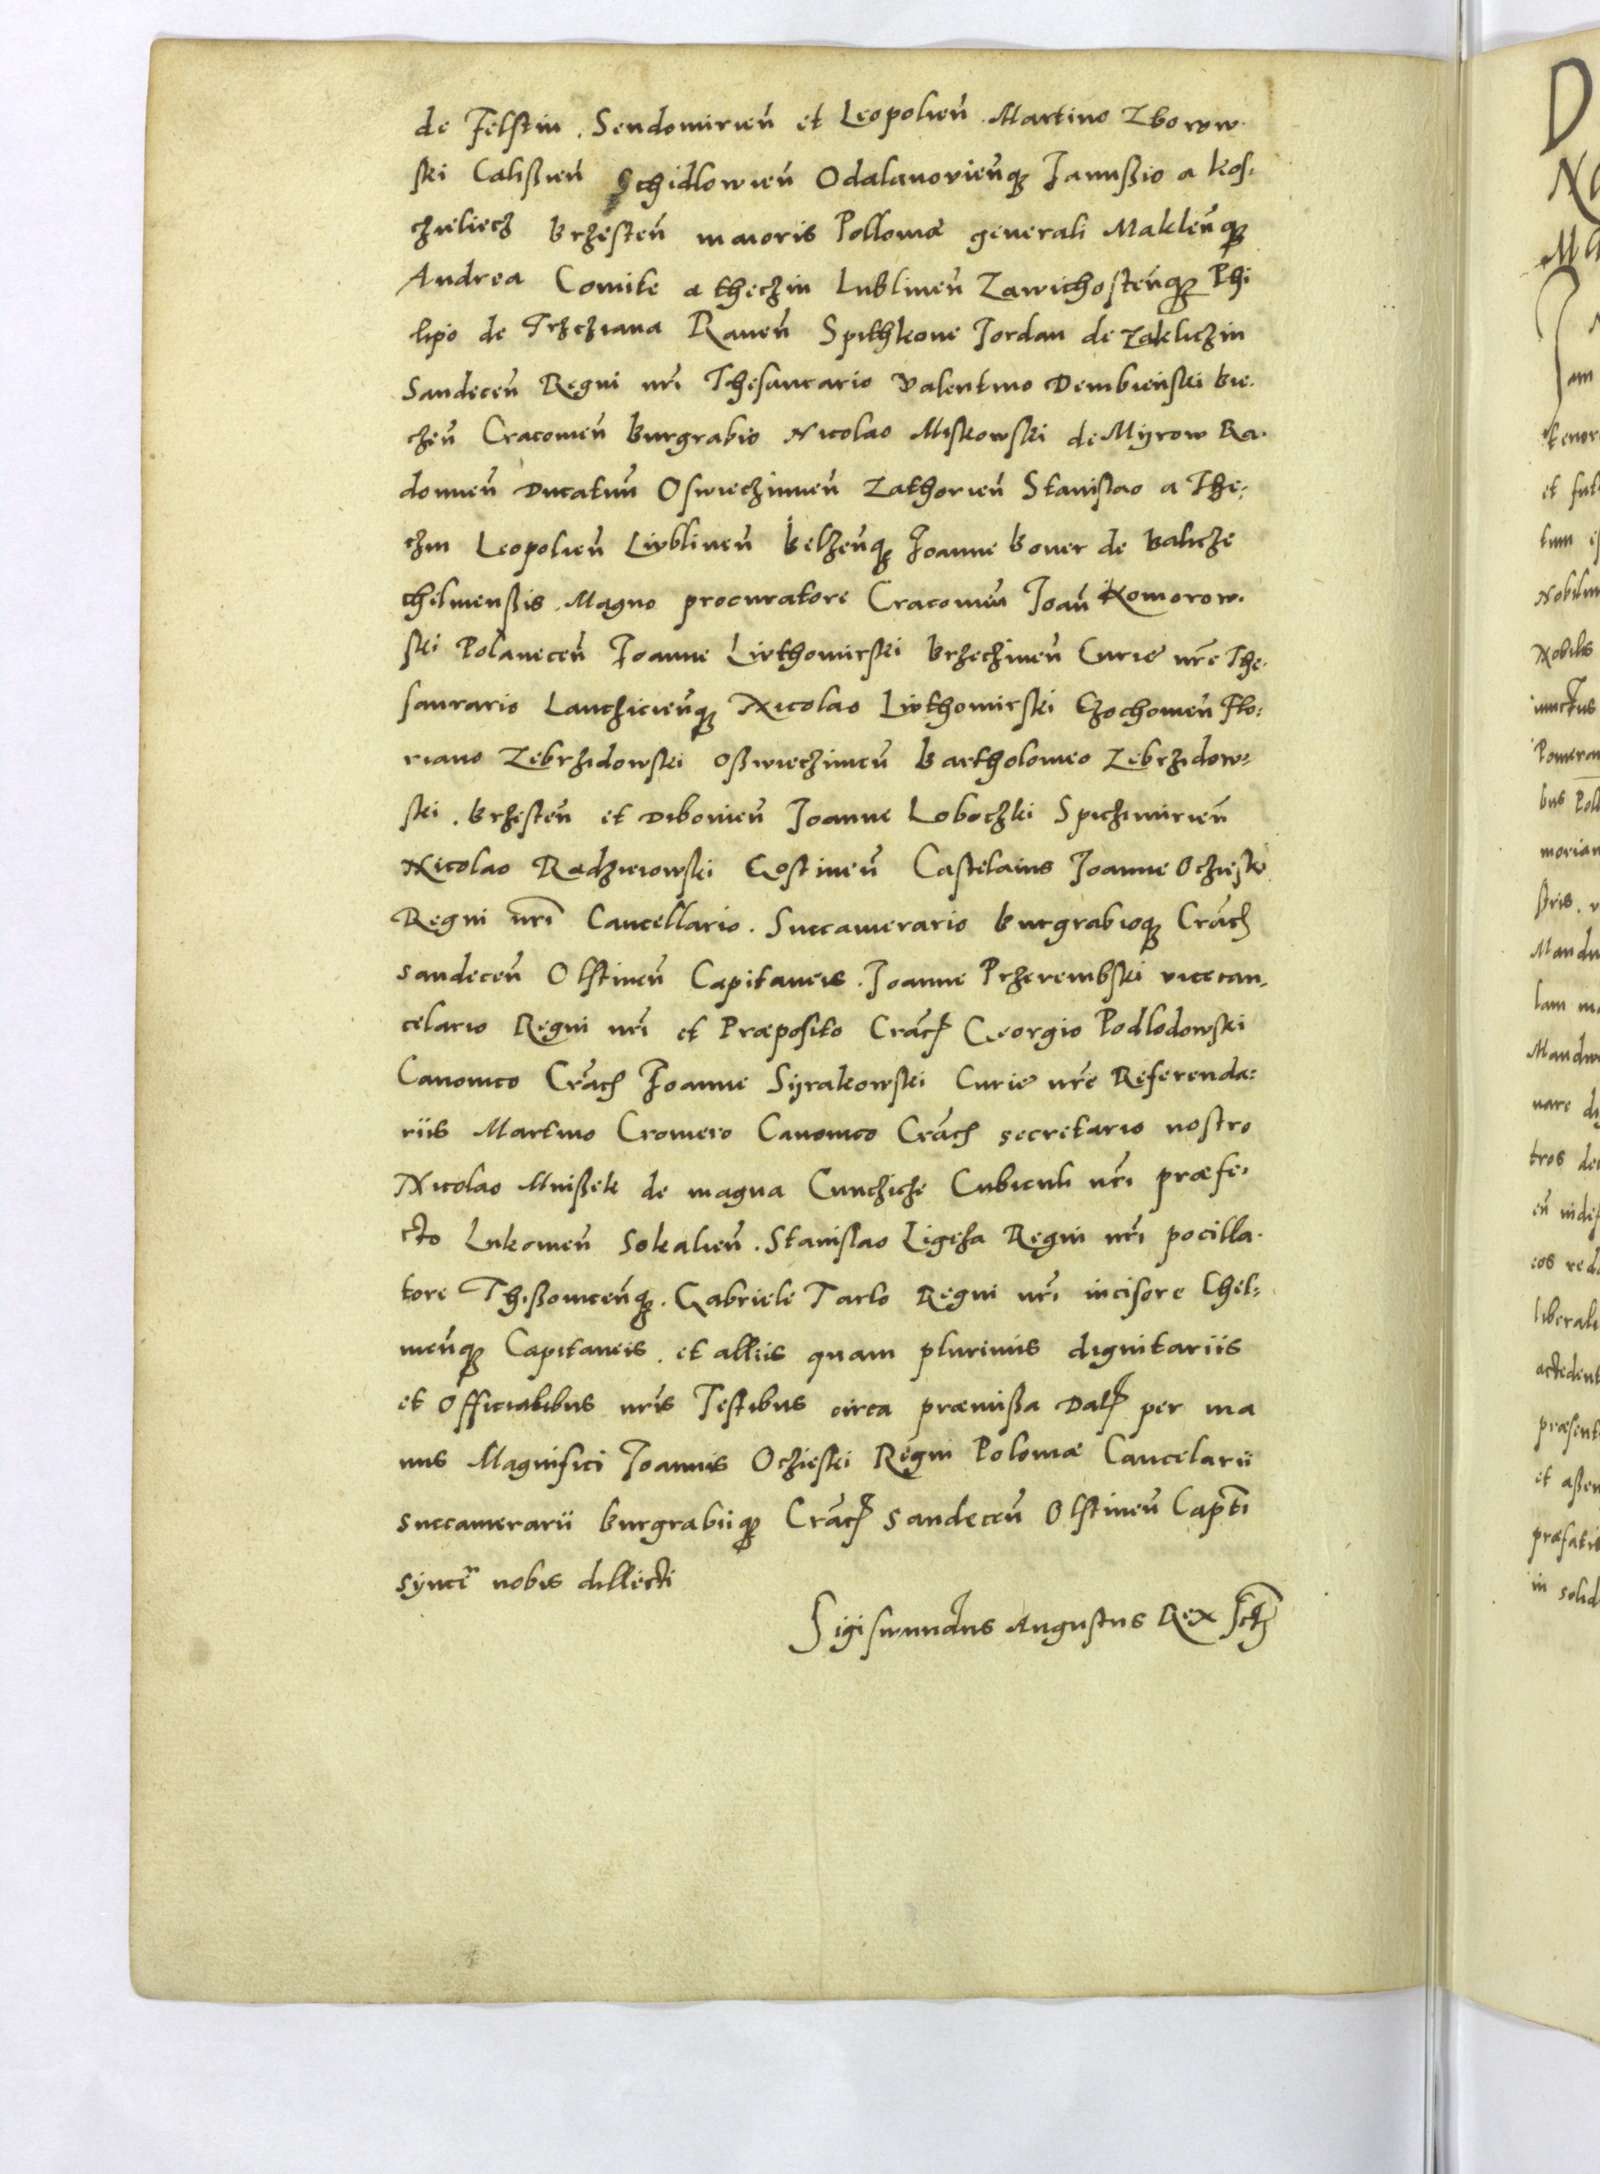 de Felstin. Sendomirieñ et Leopolieñ. Martino Zborow-
ski Calißieñ Schidlowieñ Odalanovieñqȝ Janußio a kos-
cżieliecż brżesteñ maioris Polloniæ generali Nakleñqȝ
Andrea Comite a thecżin Lublineñ Zawichosteñqȝ Phi
lipo de Trzcżiana Raueñ Spithkone Jordan de Zaklicżin
Sandeceñ Regni nr̃i Thesaurario Valentino Dembieński bie-
cheñ Cracouieñ burgrabio Nicolao Miskowski de Myrow Ra-
domieñ Ducatuũ Oswiecżimeñ Zathorieñ Stanislao a The-
cżin Leopolieñ Liublineñ belzeñqȝ Joanne boner de balicże
chelmenßis. Magno procuratore Cracouieñ Joañ Komorow-
ski Polaneceñ Joanne Liuthomirski brżecżineñ Curiæ nr̃e The-
saurario Lancżicieñqȝ Nicolao Liuthomirski Cżochoueñ Flo-
riano Zebrżidowski Oßwiecżimeñ bartholomeo Zebrżidow-
ski. brżesteñ et Diboueñ Joanne Lobocżki Spicżimirieñ
Nicolao Radzieiowski Gostineñ Castelanis Joanne Ocżieski
Regni nr̃i Cancellario. Succamerario burgrabioqȝ Crac̃
sandeceñ Olstineñ Capitaneis. Joanne Przerembski vicecan-
celario Regni nr̃i et Præposito Crac̃ Georgio Podlodowski
Canonico Crac̃ Joanne Syrakowski Curiæ nr̃e Referenda-
riis Martino Cromero Canonico Crac̃ secretario nostro
Nicolao Mnißek de magna Cuncżicże Cubiculi nr̃i præfe-
cto Lukoueñ Sokalieñ. Stanislao Ligeża Regni nr̃i pocilla-
tore Thißouiceñqȝ. Gabriele Tarlo Regni nr̃i incisore Chel-
meñqȝ Capitaneis. et alliis quam plurimis dignitariis
et Officialibus nr̃is Testibus circa præmißa Dat̃ per ma
nus Magnifici Joannis Ocżieski Regni Poloniæ Cancelarii
succamerarii burgrabiiqȝ Crac̃ sandeceñ Olstineñ Capt̃i
syncẽ nobis dillecti
Sigismundus Augustus Rex sc̃t